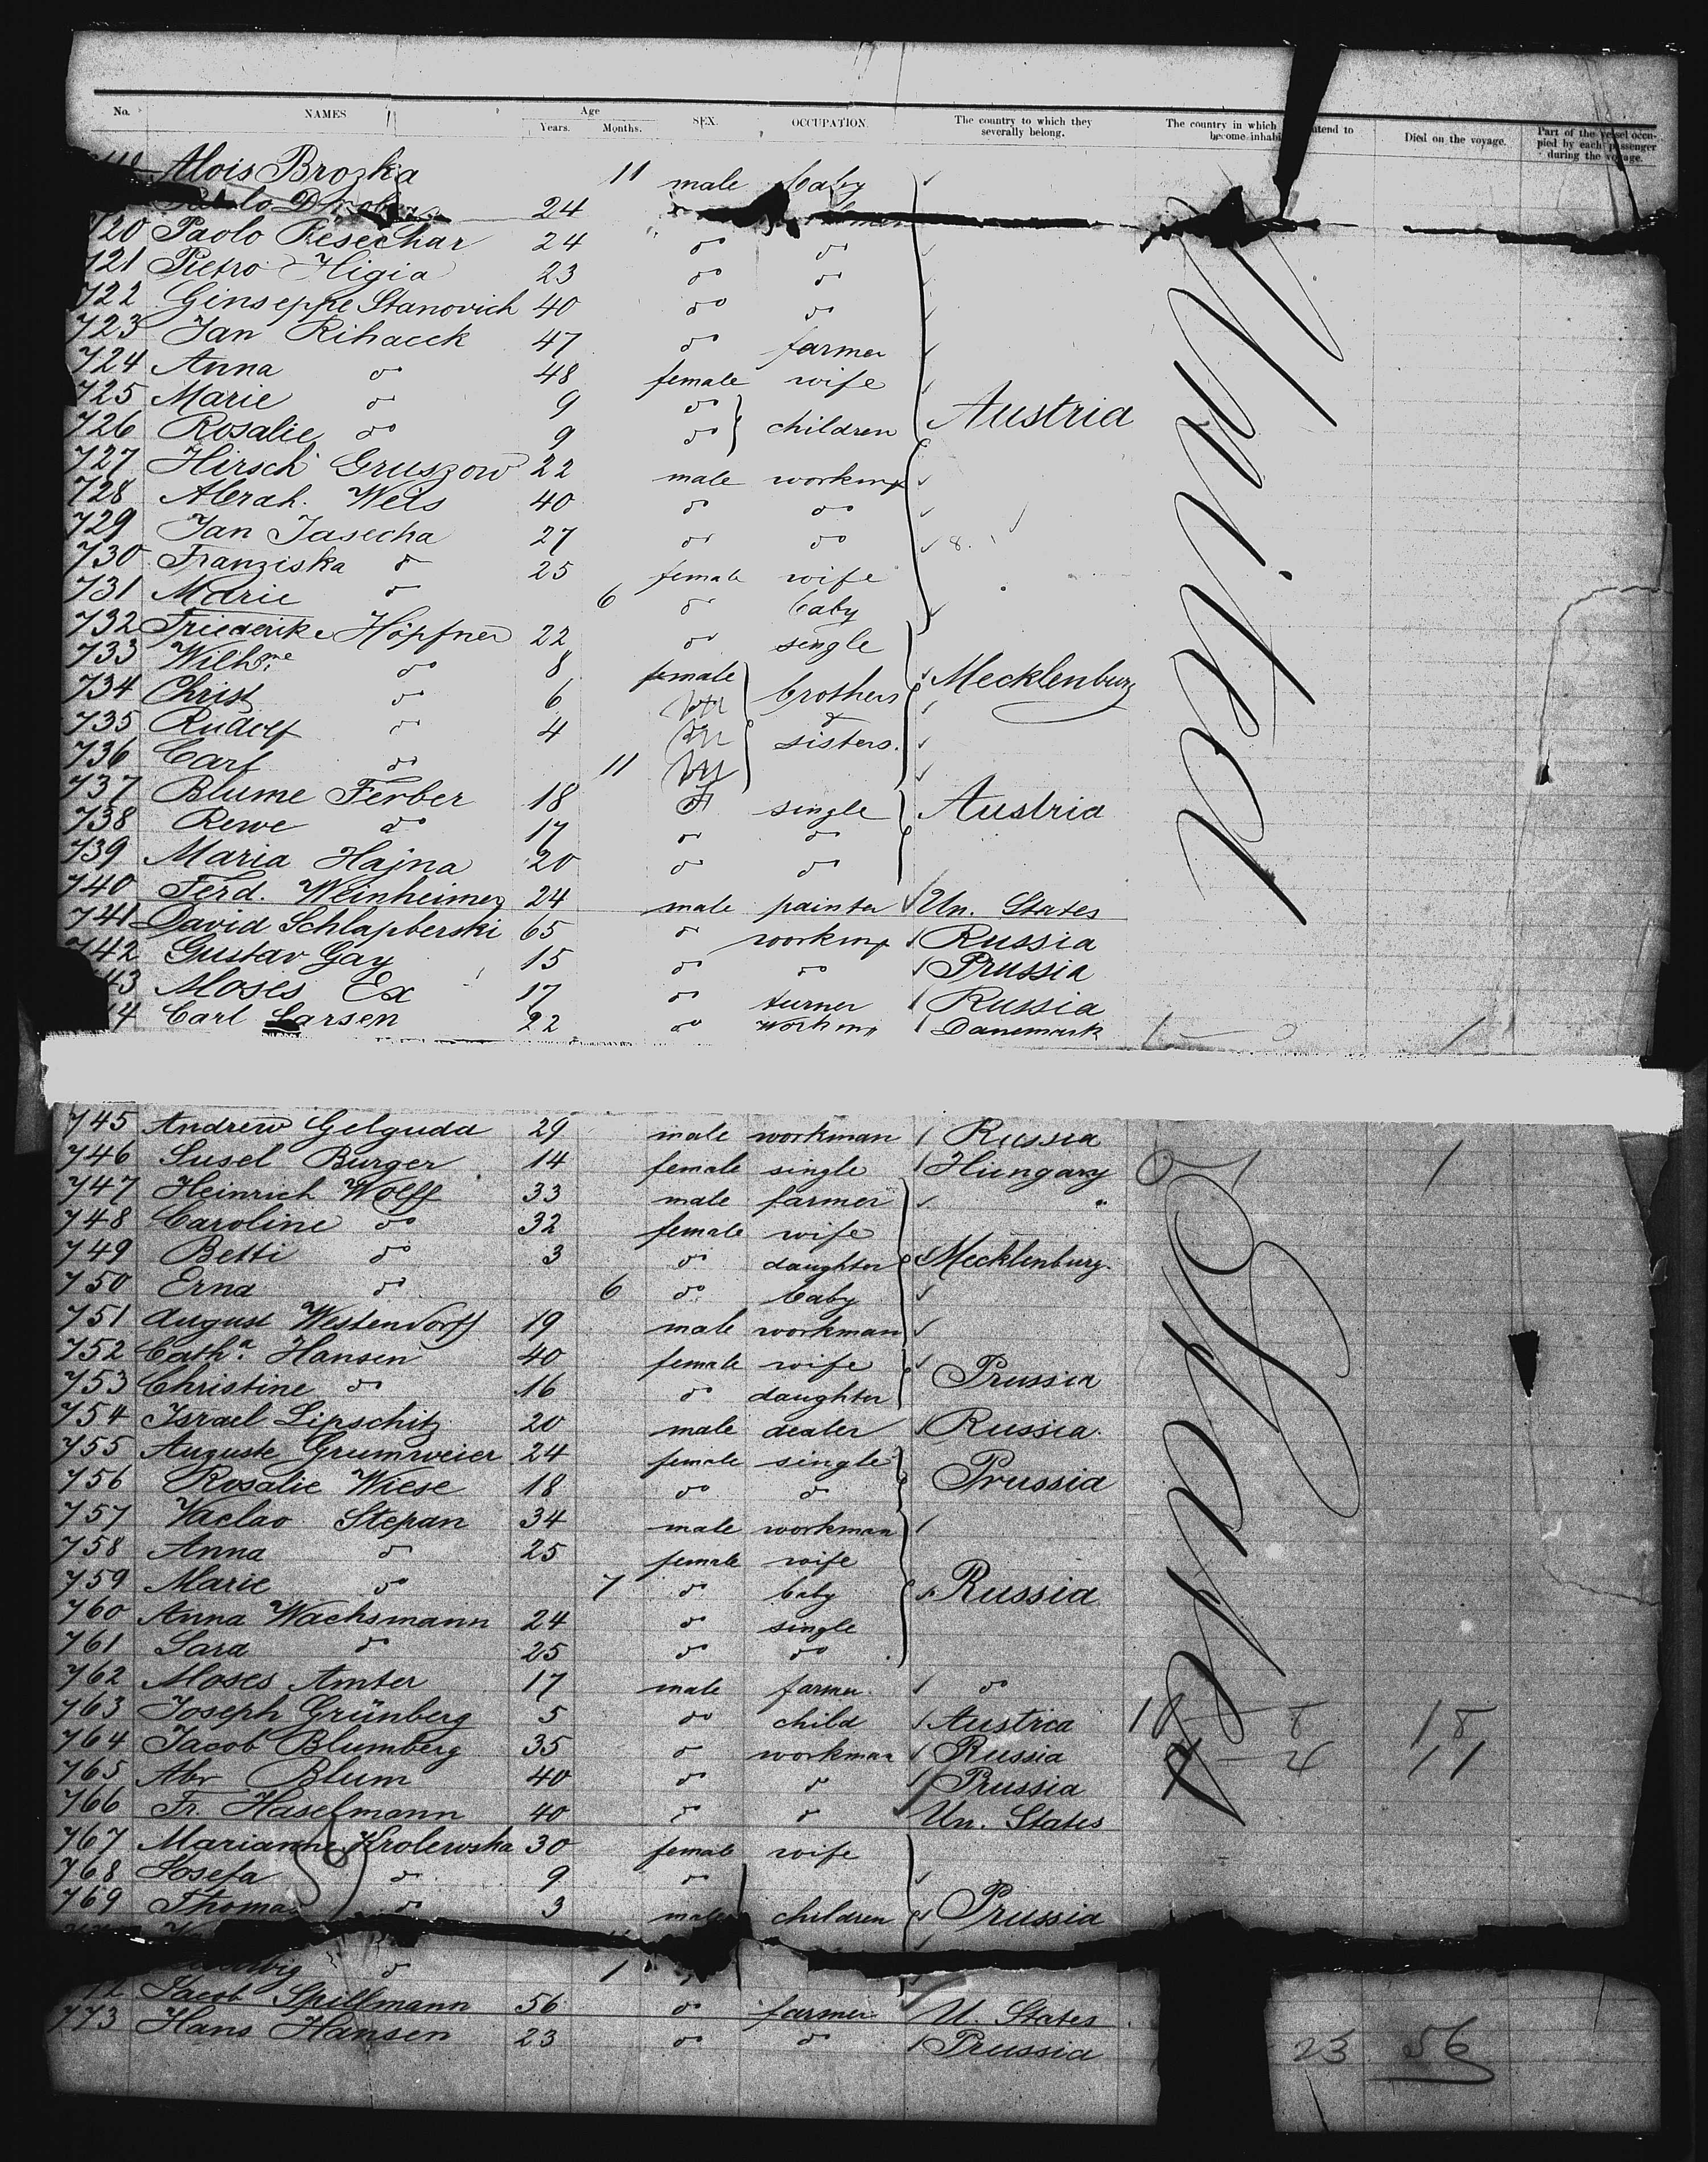 No. NAMES Age Years. Months. SEX. OCCUPATION. The country to which they severally belong. The country in which intend to become inhabi Died on the voyage. Part of the vessel occupied by each passenger during the voyage.
Alois Brozka 11 male baby
24
720 Paolo Resechar 24 do do
721 Pietro Higia 23 do do
722 Ginseppe Stanovich 40 do do
723 Jan Rihacek 47 do farmer
724 Anna do 48 female wife
725 Marie do 9 do children Austria
726 Rosalie do 9 do
727 Hirsch Gruszow 22 male workmn
728 Abrah. Weis 40 do do
729 Jan Jasecha 27 do do
730 Franziska do 25 female wife
731 Marie do 6 do baby
732 Friederike Höpfner 22 do single
733 Wilhme do 8 female brothers & sisters. Mecklenburg
734 Christ do 6 m
735 Rudolf do 4 m
736 Carl do 11 m
737 Blume Ferber 18 F single Austria
738 Rewe do 17 do do
739 Maria Hajna 20 do do
740 Ferd. Weinheimer 24 male painter Un. States
741 David Schlapberski 65 do workmn Russia
742 Gustav Gay 15 do do Prussia
43 Moses Ex 17 do turner Russia
4 Carl Larsen 22 do workmn Danemark
745 Andrew Gelguda 29 male workman Russia
746 Susel Burger 14 female single Hungary
747 Heinrich Wolff 33 male farmer
748 Caroline do 32 female wife
749 Betti do 3 do daughter Mecklenburg.
750 Erna do 6 do baby
751 August Westendorff 19 male workman
752 Catha. Hansen 40 female wife Prussia
753 Christine do 16 do daughter
754 Israel Lipschitz 20 male dealer Russia.
755 Auguste Grumweier 24 female single Prussia
756 Rosalie Wiese 18 do do
757 Vaclav Stepan 34 male workman
758 Anna do 25 female wife
759 Marie do 7 do baby Russia
760 Anna Wachsmann 24 do single
761 Sara do 25 do do
762 Moses Amter 17 male farmer do
763 Joseph Grünberg 5 do child Austria
764 Jacob Blumberg 35 do workman Russia
765 Abr Blum 40 do do Prussia
766 Fr. Haselmann 40 do do Un. States
767 Marianne Krolewska 30 female wife
768 Josefa do 9 do
769 Thomas do 3 male children Prussia
do 1
72 Jacob Spillmann 56 do farmer U. States
773 Hans Hansen 23 do do Prussia
23 56